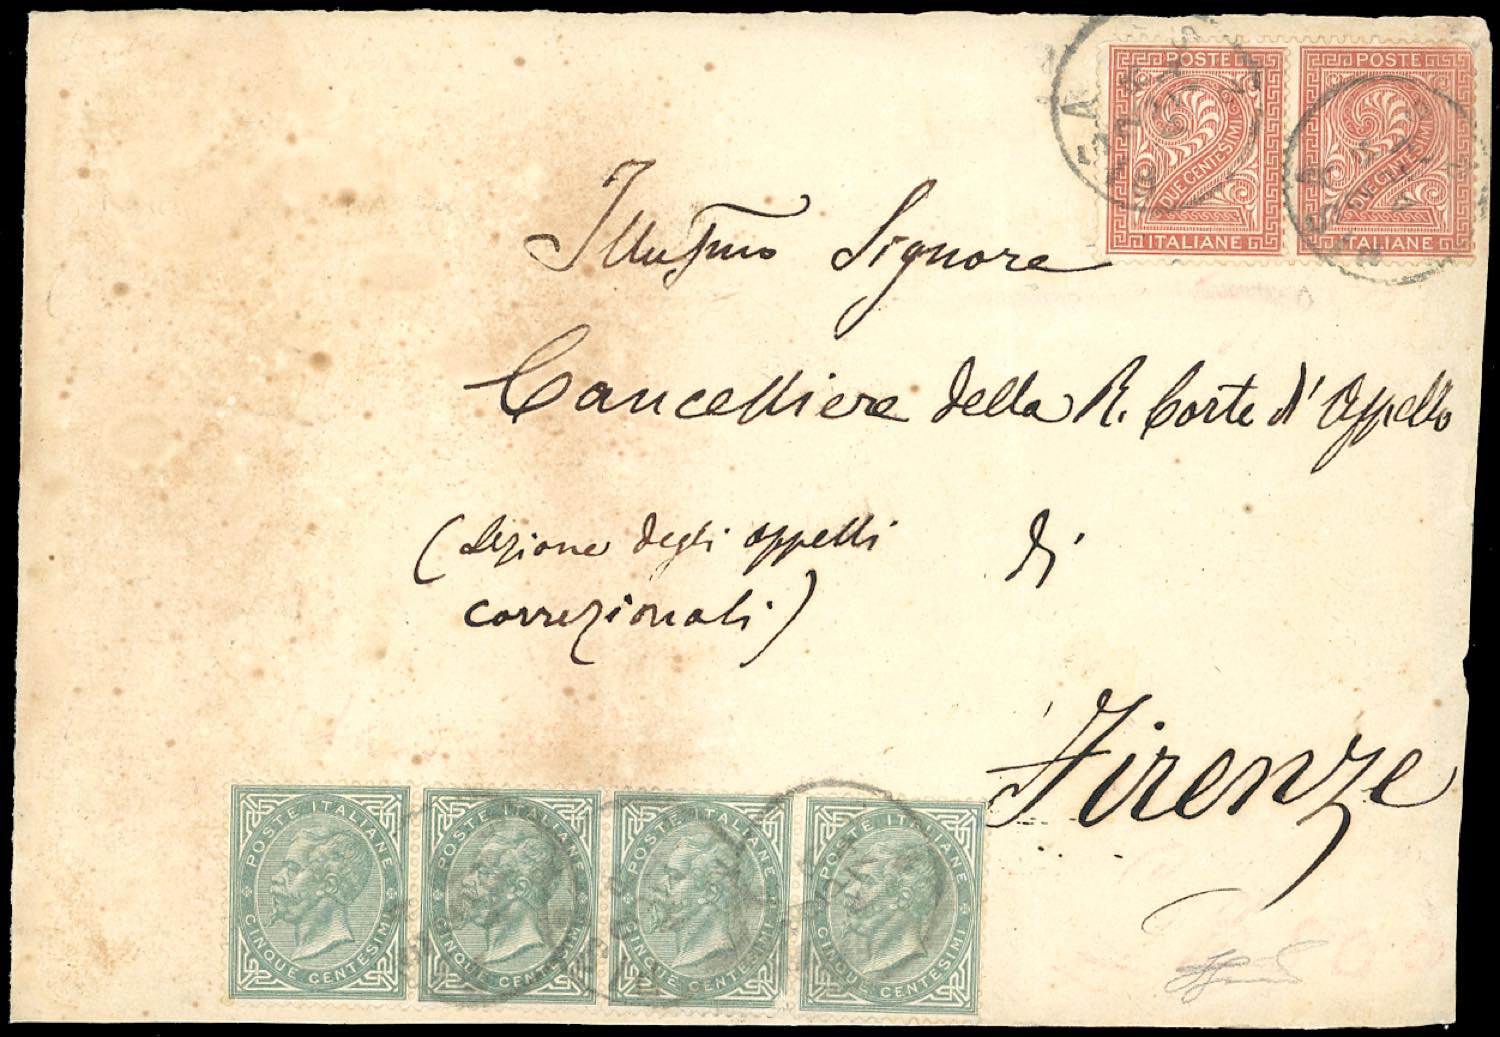 POSTE POSTE
DUE CENTESIMI DUE CENTESIMI
ITALIANE ITALIANE
Illustmo Signore
Cancelliere della R. Corte d'Appello
(Sezione degli appelli di
correzionali)
Firenze
POSTE ITALIANE POSTE ITALIANE POSTE ITALIANE POSTE ITALIANE
CINQUE CENTESIMI CINQUE CENTESIMI CINQUE CENTESIMI CINQUE CENTESIMI